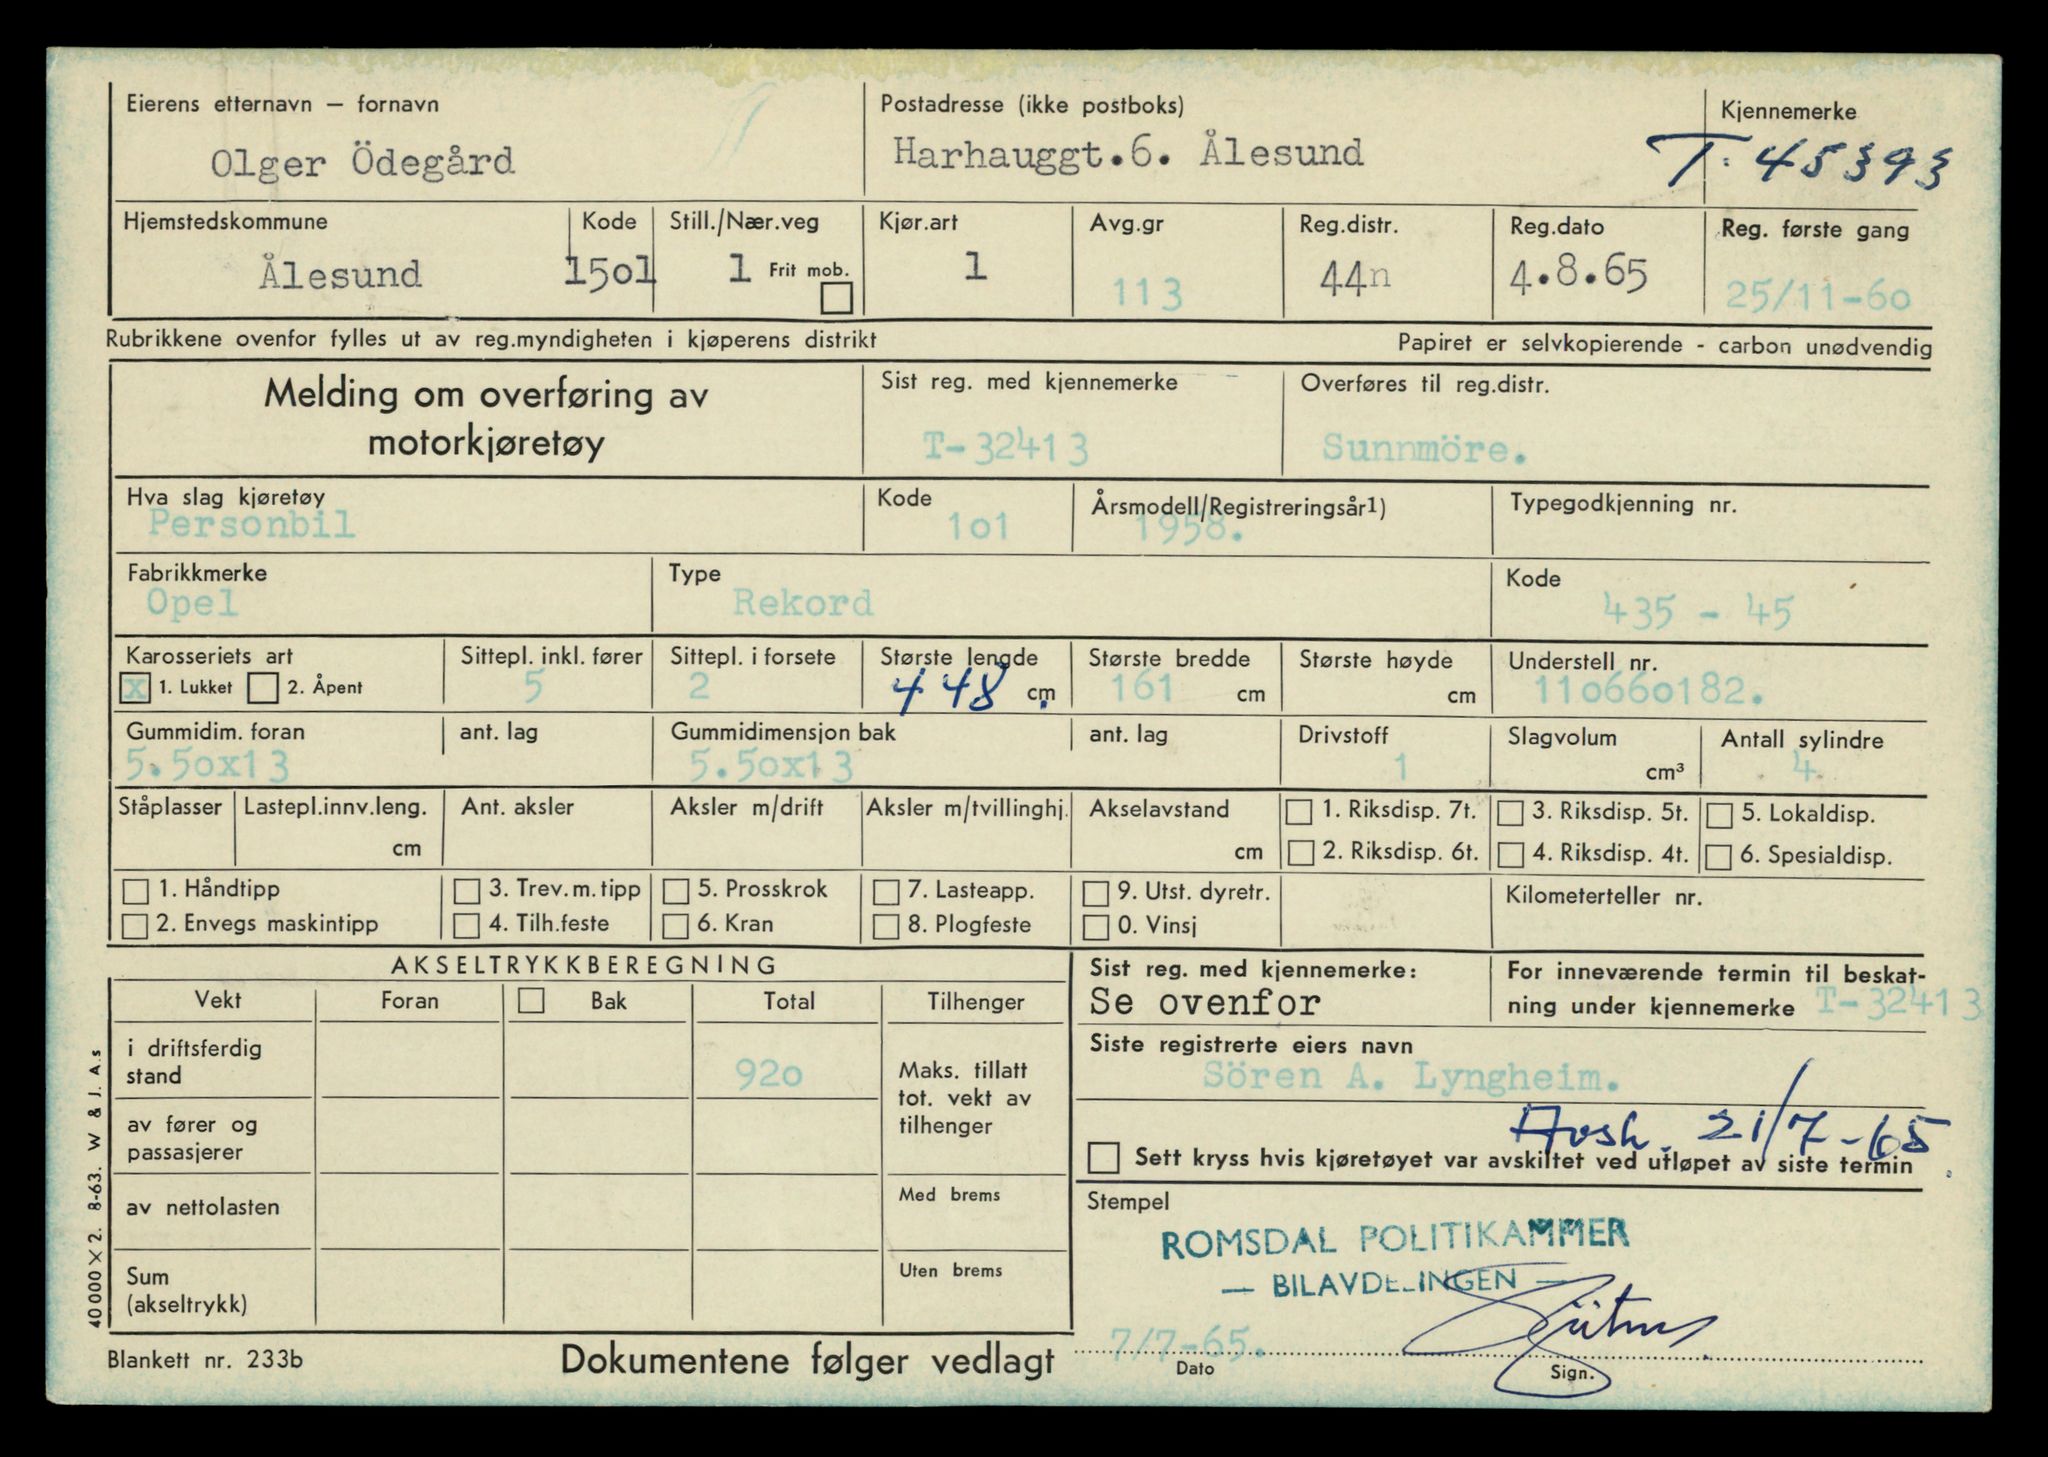 Eierens etternavn – fornavn
Olger Ödegård
Postadresse (ikke postboks)
Harhauggt.6. Ålesund
Kjennemerke
T. 45393
Hjemstedskommune
Ålesund
Kode
15o1
Still./Nær.veg
1
Frit mob.
Kjør.art
1
Avg.gr
113
Reg.distr.
44n
Reg.dato
4.8.65
Reg. første gang
25/11-6o
Rubrikkene ovenfor fylles ut av reg.myndigheten i kjøperens distrikt
Papiret er selvkopierende - carbon unødvendig
Melding om overføring av
motorkjøretøy
Sist reg. med kjennemerke
T-32413
Overføres til reg.distr.
Sunnmöre.
Hva slag kjøretøy
Personbil
Kode
1o1
Årsmodell/Registreringsår1)
1958.
Typegodkjenning nr.
Fabrikkmerke
Opel
Type
Rekord
Kode
435 - 45
Karosseriets art
x 1. Lukket 2. Åpent
Sittepl. inkl. fører
5
Sittepl. i forsete
2
Største lengde
448 cm
Største bredde
161 cm
Største høyde
cm
Understell nr.
11o66o182.
Gummidim. foran
5.5ox13
ant. lag
Gummidimensjon bak
5.5ox13
ant. lag
Drivstoff
1
Slagvolum
cm³
Antall sylindre
4
Ståplasser
Lastepl.innv.leng.
cm
Ant. aksler
Aksler m/drift
Aksler m/tvillinghj.
Akselavstand
cm
1. Riksdisp. 7t.
2. Riksdisp. 6t.
3. Riksdisp. 5t.
4. Riksdisp. 4t.
5. Lokaldisp.
6. Spesialdisp.
1. Håndtipp
2. Envegs maskintipp
3. Trev.m.tipp
4. Tilh.feste
5. Prosskrok
6. Kran
7. Lasteapp.
8. Plogfeste
9. Utst. dyretr.
0. Vinsj
Kilometerteller nr.
AKSELTRYKKBEREGNING
Vekt Foran Bak Total Tilhenger
i driftsferdig
stand
92o
av fører og
passasjerer
av nettolasten
Sum
(akseltrykk)
Maks. tillatt
tot. vekt av
tilhenger
Med brems
Uten brems
Sist reg. med kjennemerke:
Se ovenfor
For inneværende termin til beskat-
ning under kjennemerke T-32413
Siste registrerte eiers navn
Sören A. Lyngheim.
21/7-65
Sett kryss hvis kjøretøyet var avskiltet ved utløpet av siste termin
Stempel
ROMSDAL POLITIKAMMER
— BILAVDELINGEN —
7/7-65.
Dato
Sign.
40 000 X 2. 8-63. W & J. A.s
Blankett nr. 233b
Dokumentene følger vedlagt